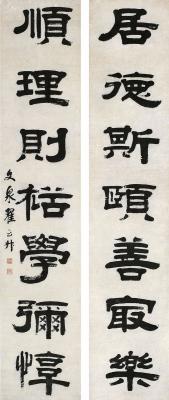 居德斯頤善冣樂
順理則裕學彌惇
文泉翟云升